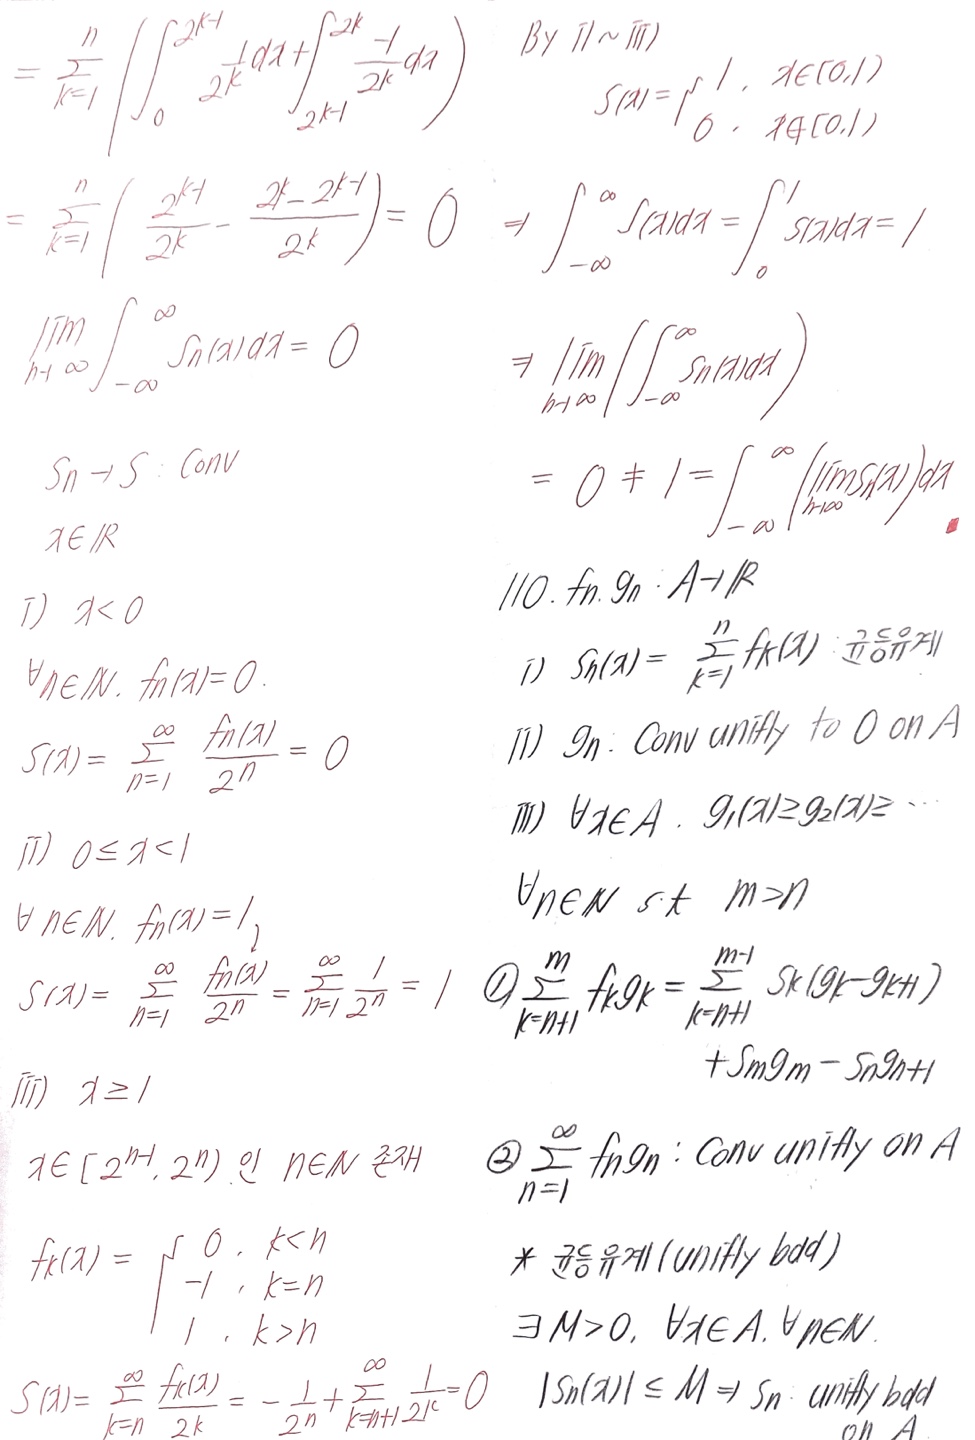 = \sum_{k=1}^{n} ( \int_0^{2^{k-1}} \frac{1}{2^k} dx + \int_{2^{k-1}}^{2^k} \frac{-1}{2^k} dx )
= \sum_{k=1}^{n} ( \frac{2^{k-1}}{2^k} - \frac{2^k - 2^{k-1}}{2^k} ) = 0
\lim_{n→∞} \int_{-∞}^{∞} Sn(x)dx = 0
Sn → S : Conv
x∈ℝ
i) x<0
∀n∈ℕ. fn(x)=0.
S(x) = \sum_{n=1}^{∞} \frac{fn(x)}{2^n} = 0
ii) 0≤x<1
∀n∈ℕ. fn(x)=1,
S(x) = \sum_{n=1}^{∞} \frac{fn(x)}{2^n} = \sum_{n=1}^{∞} \frac{1}{2^n} = 1
iii) x≥1
x∈[2^{n-1}, 2^n) 인 n∈ℕ 존재
fk(x) = { 0 , k<n
-1 , k=n
1 , k>n
S(x) = \sum_{k=n}^{∞} \frac{fk(x)}{2^k} = -\frac{1}{2^n} + \sum_{k=n+1}^{∞} \frac{1}{2^k} = 0
By i) ~ iii)
S(x) = { 1 , x∈[0,1)
0 , x∉[0,1)
⇒ \int_{-∞}^{∞} S(x)dx = \int_0^1 S(x)dx = 1
⇒ \lim_{n→∞} ( \int_{-∞}^{∞} Sn(x)dx )
= 0 ≠ 1 = \int_{-∞}^{∞} ( \lim_{n→∞} Sn(x) ) dx
110. fn, gn : A→ℝ
i) Sn(x) = \sum_{k=1}^{n} fk(x) : 균등유계
ii) gn : Conv unifly to 0 on A
iii) ∀x∈A . g1(x)≥g2(x)≥ ⋯
∀n∈ℕ s.t m>n
① \sum_{k=n+1}^{m} fkgk = \sum_{k=n+1}^{m-1} Sk(gk-gk+1)
+Smgm - Sngn+1
② \sum_{n=1}^{∞} fngn : Conv unifly on A
* 균등유계 (unifly bdd)
∃M>0, ∀x∈A, ∀n∈ℕ.
|Sn(x)| ≤ M ⇒ Sn : unifly bdd
on A